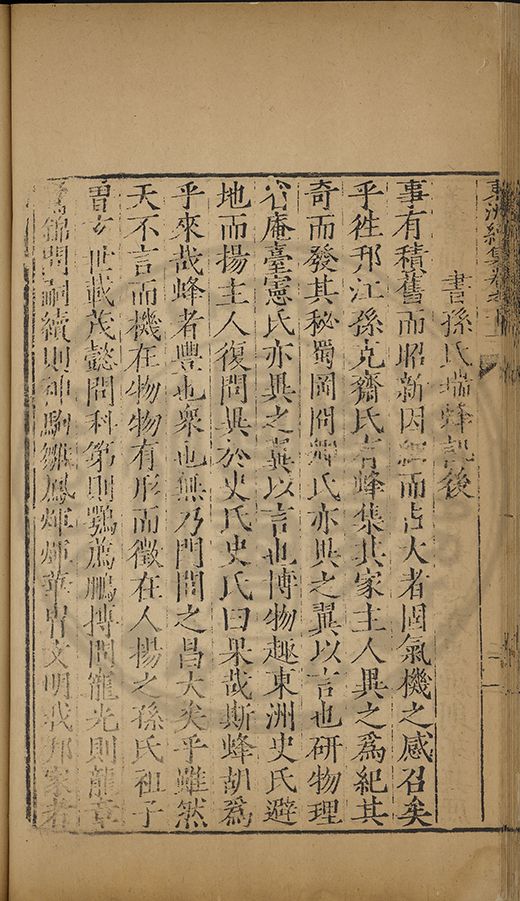 東洲續集卷之十一
書孫氏瑞蜂記後
事有積舊而昭新因細而占大者固氣機之感召矣
乎徃邗江孫克齋氏有蜂集其家主人異之爲紀其
奇而發其秘蜀岡岡卿氏亦異之冀以言也研物理
谷庵臺憲氏亦異之冀以言也博物趣東洲史氏避
地而揚主人復問異於史氏史氏曰果哉斯蜂胡爲
乎來哉蜂者豐也衆也無乃門閭之昌大矣乎雖然
天不言而機在物物有形而徵在人揚之孫氏祖子
胄世載茂懿問科第則鶚薦鵬摶問寵光則龍章
錦問嗣續則神駒雛鳳煇煇華胄文明我邦家者